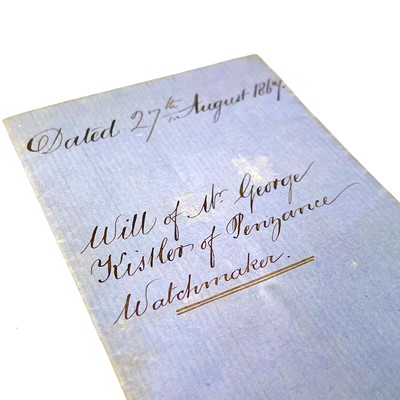 Dated 27th August 1867.
Will of Mr George
Kistler of Penzance
Watchmaker.